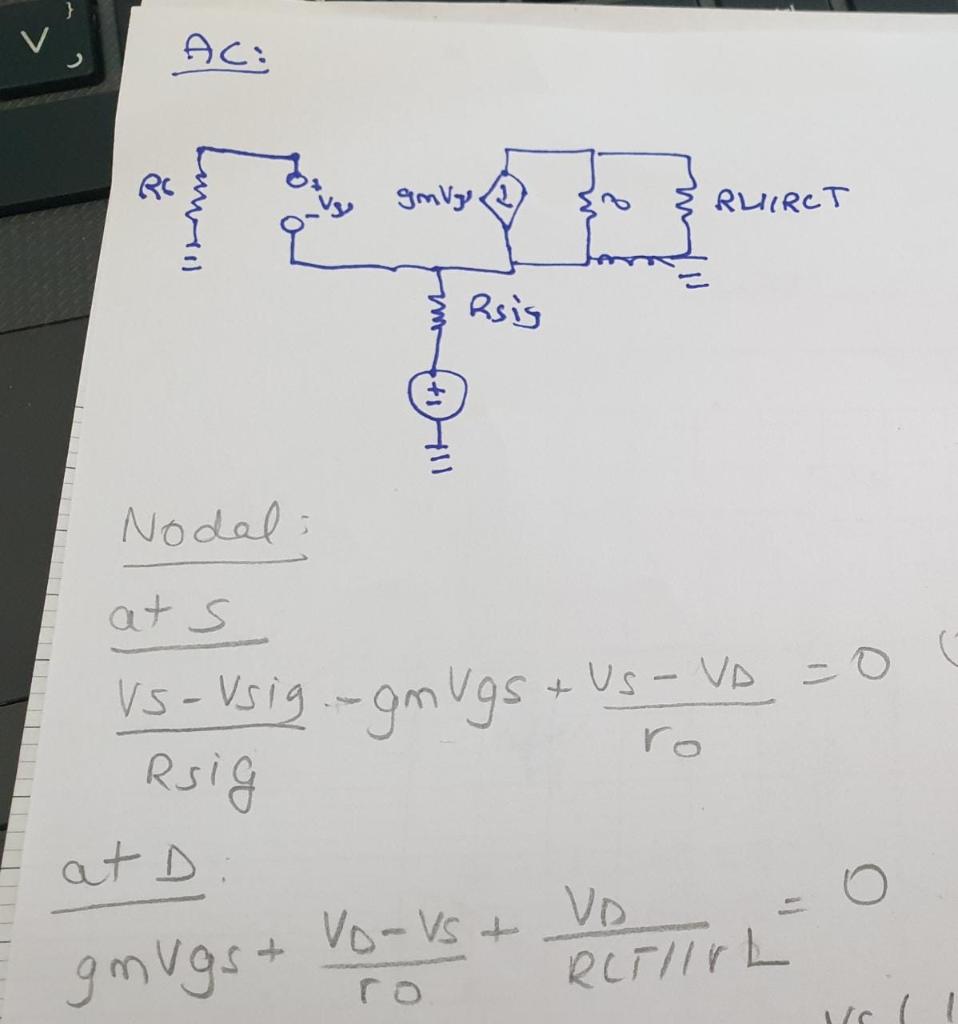 V } ,
AC:
RG
+
Vgs
-
gmVgs
ro
RL//RCT
Rsig
+
-
Nodal:
at S
VS - Vsig / Rsig - gmVgs + VS - VD / ro = 0 (
at D:
gmVgs + VD - VS / ro + VD / RCT//rL = 0
VS (